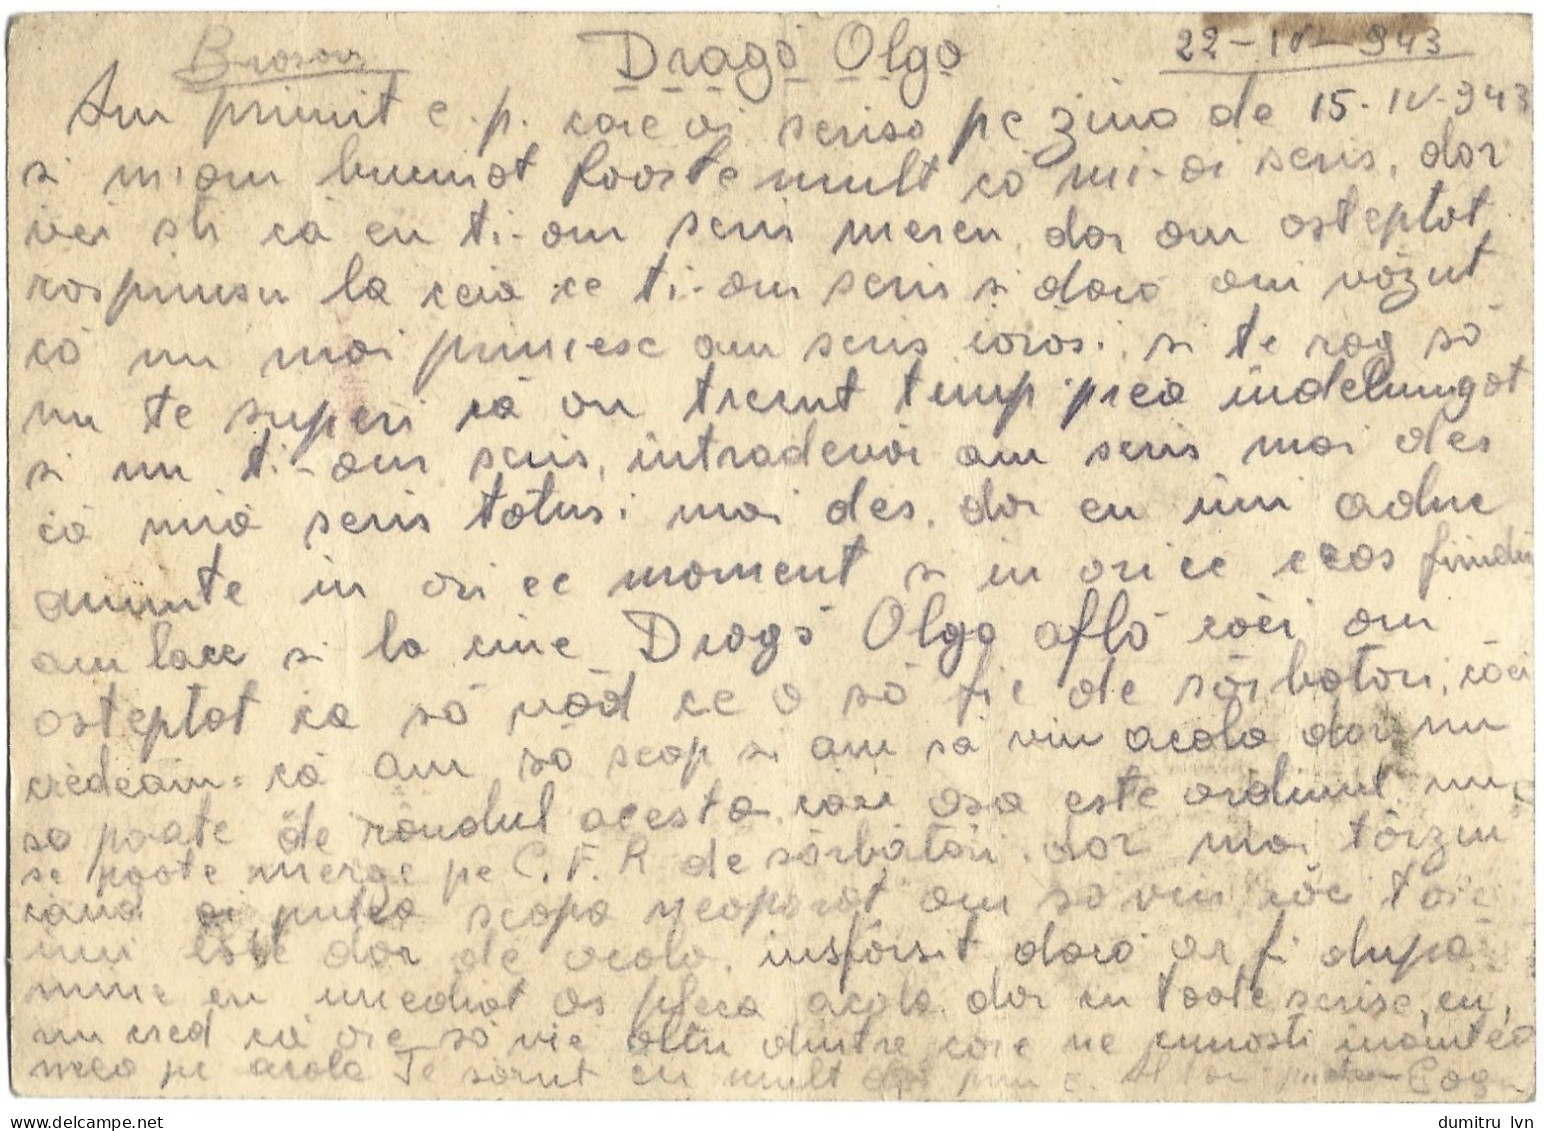 Brasov
Dragă Olga
22-IV-943
Am primit c.p. care ai scrisa pe zina de 15-IV-943
si miam bucurat foarte mult că mi-ai scris, dar
vei sti că eu ti-am scris mereu, dar am asteptat
raspunsu la ceia ce ti-am scris si dacă am văzut
că nu mai primesc am scris iarăsi, si te rog să
nu te superi că au trecut timp prea îndelungat
si nu ti-am scris, intradevăr am scris mai des
că mia scris totusi mai des, dar eu îmi aduc
aminte in ori ce moment si in ori ce ceas fiindu
am lace si la tine Dragă Olga află căci am
asteptat ca să văd ce o să fie de sărbatori, căci
credeam că am să scap si am să vin acolo dar nu
sa poate de rândul acesta, căci asa este ordinul nu
se poate merge pe C.F.R de sărbători, dar mai tărziu
când oi putea scapa neaparat am să vin căc tare
mi este dor de acolo, insfărsit, dacă ar fi după
mine eu imediat as pleca acolo dar cu toate scrise, eu,
nu cred că are să vie altu dintre care ne cunosti inaintea
mea pe acolo Te sărut cu mult